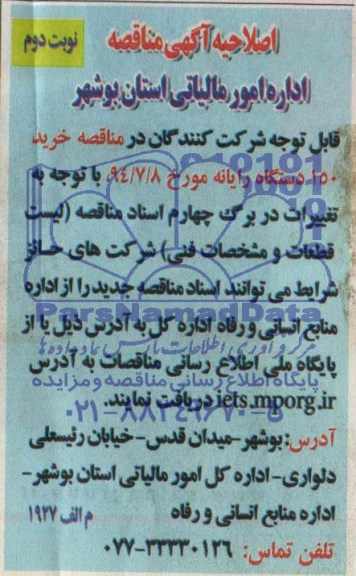 نوبت دوم
اصلاحیه آگهی مناقصه
اداره امور مالیاتی استان بوشهر
قابل توجه شرکت کنندگان در مناقصه خرید
۱۵۰ دستگاه رایانه مورخ ۹۴/۷/۸، با توجه به
تغییرات در برگ چهارم اسناد مناقصه (لیست
قطعات و مشخصات فنی) شرکت های حائز
شرایط می توانند اسناد مناقصه جدید را از اداره
منابع انسانی و رفاه اداره کل به آدرس ذیل یا از
پایگاه ملی اطلاع رسانی مناقصات به آدرس
iets.mporg.ir دریافت نمایند.
آدرس: بوشهر-میدان قدس-خیابان رئیسعلی
دلواری-اداره کل امور مالیاتی استان بوشهر-
اداره منابع انسانی و رفاه
م الف ۱۹۲۷
تلفن تماس: ۰۷۷-۳۳۳۳۰۱۲۶
ParsNamadData
پایگاه اطلاع رسانی مناقصه و مزایده
۰۲۱-۸۸۳۴۹۶۷۰-۵